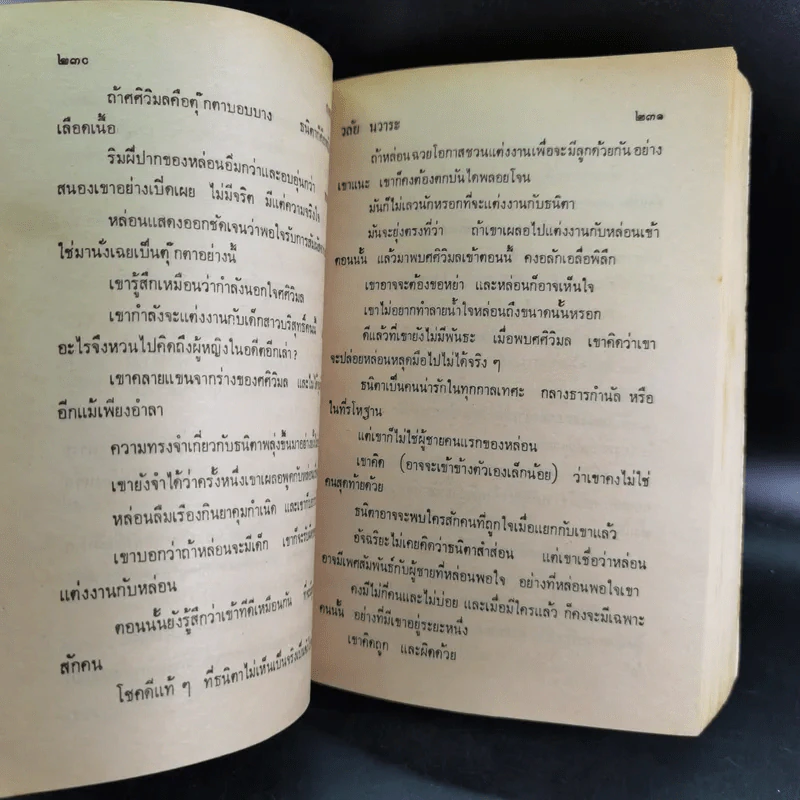 ๒๓๐
ถ้าศศิวิมลคือตุ๊กตาบอบบาง ธนิตาก็คือ
เลือดเนื้อ
ริมฝีปากของหล่อนอิ่มกว่าและอบอุ่นกว่า
สนองเขาอย่างเปิดเผย ไม่มีจริต มีแต่ความจริงใจ
หล่อนแสดงออกชัดเจนว่าพอใจรับการสัมผัส
ใช่มานั่งเฉยเป็นตุ๊กตาอย่างนี้
เขารู้สึกเหมือนว่ากำลังนอกใจศศิวิมล
เขากำลังจะแต่งงานกับเด็กสาวบริสุทธิ์คนนี้
อะไรจึงหวนไปคิดถึงผู้หญิงในอดีตอีกเล่า?
เขาคลายแขนจากร่างของศศิวิมล และไม่ได้
อีกแม้เพียงอำลา
ความทรงจำเกี่ยวกับธนิตาพลุ่งขึ้นมาอย่าง
เขายังจำได้ว่าครั้งหนึ่งเขาเผลอพูดกับหล่อน
หล่อนลืมเรื่องกินยาคุมกำเนิด และเขาก็
เขาบอกว่าถ้าหล่อนจะมีเด็ก เขาก็จะ
แต่งงานกับหล่อน
ตอนนั้นยังรู้สึกว่าเข้าทีดีเหมือนกัน ที่จะ
สักคน
โชคดีแท้ ๆ ที่ธนิตาไม่เห็นเป็นจริงเป็นจัง
วลัย นวาระ
๒๓๑
ถ้าหล่อนฉวยโอกาสชวนแต่งงานเพื่อจะมีลูกด้วยกัน อย่าง
เขาแนะ เขาก็คงต้องตกบันไดพลอยโจน
มันก็ไม่เลวนักหรอกที่จะแต่งงานกับธนิตา
มันจะยุ่งตรงที่ว่า ถ้าเขาเผลอไปแต่งงานกับหล่อนเข้า
ตอนนั้น แล้วมาพบศศิวิมลเข้าตอนนี้ คงอลักเอลื่อพิลึก
เขาอาจจะต้องขอหย่า และหล่อนก็อาจเห็นใจ
เขาไม่อยากทำลายน้ำใจหล่อนถึงขนาดนั้นหรอก
ดีแล้วที่เขายังไม่มีพันธะ เมื่อพบศศิวิมล เขาคิดว่าเขา
จะปล่อยหล่อนหลุดมือไปไม่ได้จริง ๆ
ธนิตาเป็นคนน่ารักในทุกกาลเทศะ กลางธารกำนัล หรือ
ในที่รโหฐาน
แต่เขาก็ไม่ใช่ผู้ชายคนแรกของหล่อน
เขาคิด (อาจจะเข้าข้างตัวเองเล็กน้อย) ว่าเขาคงไม่ใช่
คนสุดท้ายด้วย
ธนิตาอาจจะพบใครสักคนที่ถูกใจเมื่อแยกกับเขาแล้ว
อัจฉริยะไม่เคยคิดว่าธนิตาสำส่อน แต่เขาเชื่อว่าหล่อน
อาจมีเพศสัมพันธ์กับผู้ชายที่หล่อนพอใจ อย่างที่หล่อนพอใจเขา
คงมีไม่กี่คนและไม่บ่อย และเมื่อมีใครแล้ว ก็คงจะมีเฉพาะ
คนนั้น อย่างที่มีเขาอยู่ระยะหนึ่ง
เขาคิดถูก และผิดด้วย